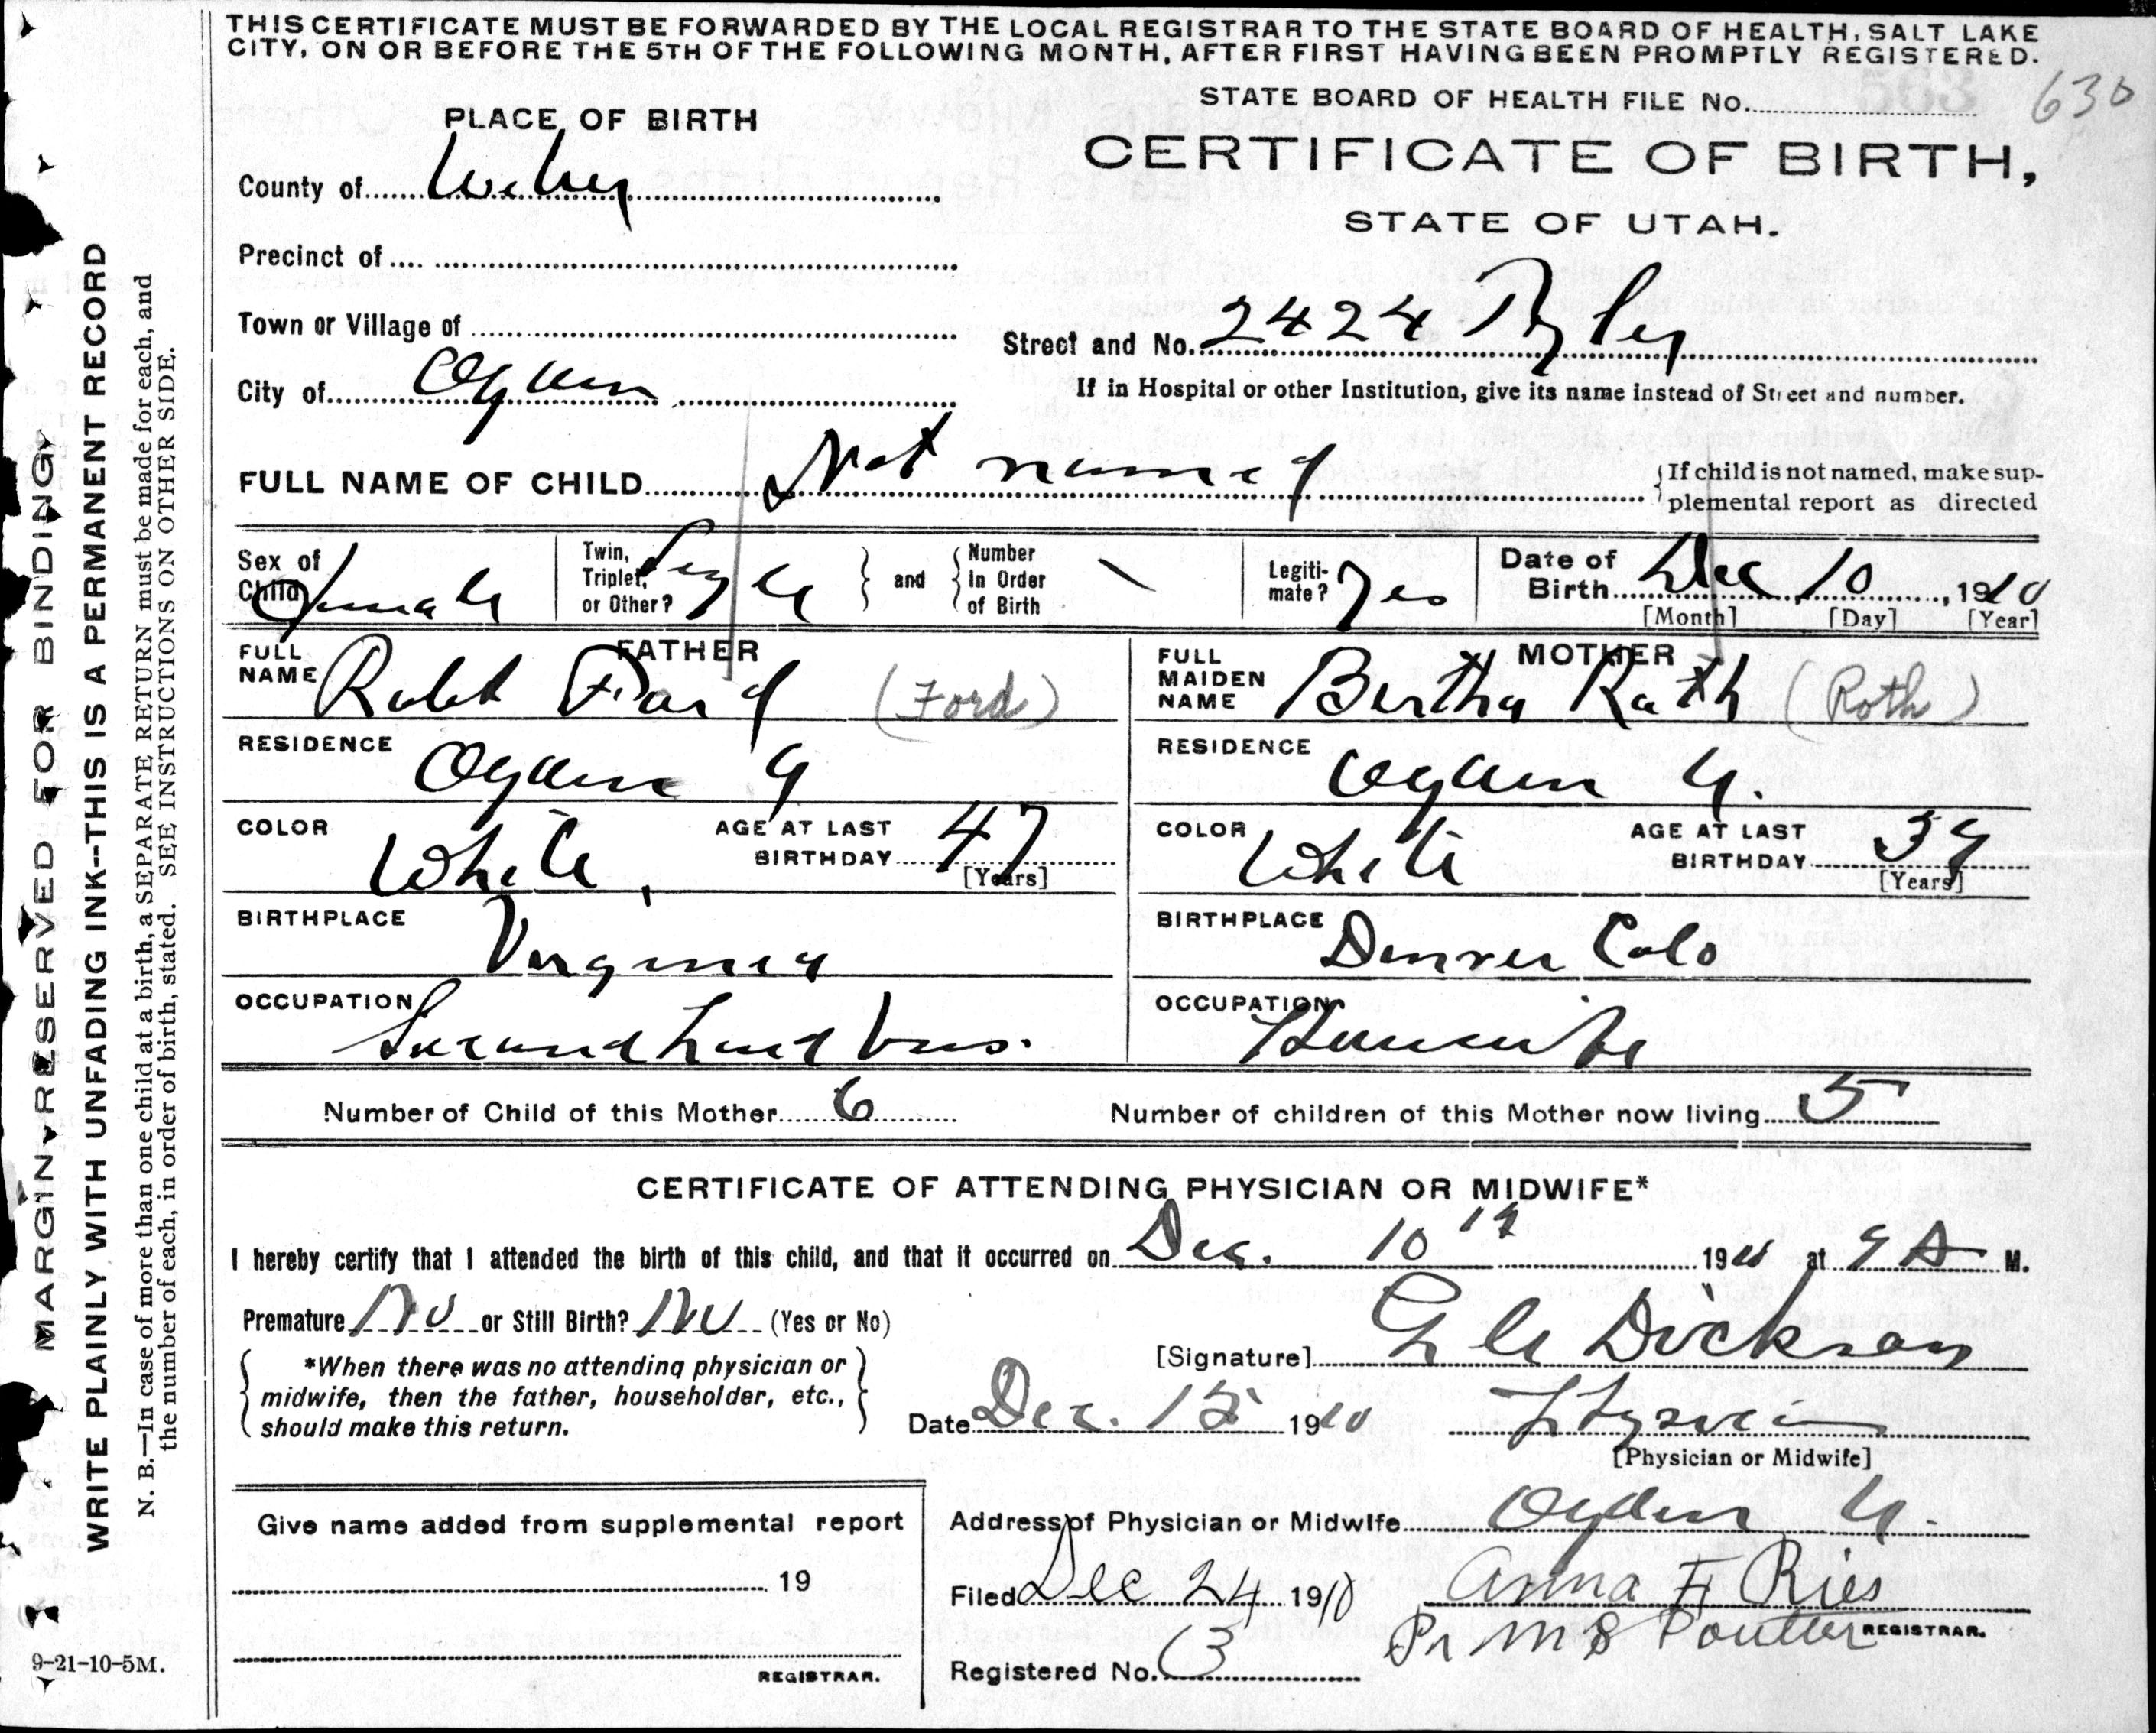 THIS CERTIFICATE MUST BE FORWARDED BY THE LOCAL REGISTRAR TO THE STATE BOARD OF HEALTH, SALT LAKE
CITY, ON OR BEFORE THE 5TH OF THE FOLLOWING MONTH, AFTER FIRST HAVING BEEN PROMPTLY REGISTERED.
STATE BOARD OF HEALTH FILE No. 630
PLACE OF BIRTH
CERTIFICATE OF BIRTH,
STATE OF UTAH.
County of Weber
Precinct of
Town or Village of
Street and No. 2424
City of Ogden
If in Hospital or other Institution, give its name instead of Street and number.
FULL NAME OF CHILD Not named
{If child is not named, make sup-
plemental report as directed
Sex of Child Female
Twin, Triplet, or Other? Single } and { Number In Order of Birth
Legiti-mate? Yes
Date of Birth Dec 10, 1910
[Month] [Day] [Year]
FATHER
FULL NAME Robt Ford (Ford)
RESIDENCE Ogden U
COLOR White
AGE AT LAST BIRTHDAY 47
[Years]
BIRTHPLACE Virginia
OCCUPATION Second hand bus.
MOTHER
FULL MAIDEN NAME Bertha Roth (Roth)
RESIDENCE Ogden U.
COLOR White
AGE AT LAST BIRTHDAY 39
[Years]
BIRTHPLACE Denver Colo
OCCUPATION Housewife
Number of Child of this Mother 6
Number of children of this Mother now living 5
CERTIFICATE OF ATTENDING PHYSICIAN OR MIDWIFE*
I hereby certify that I attended the birth of this child, and that it occurred on Dec. 10th 1910 at 9 A M.
Premature No or Still Birth? No (Yes or No)
{ *When there was no attending physician or
midwife, then the father, householder, etc.,
should make this return. }
[Signature] Dickson
Date Dec. 15 1910
Physician
[Physician or Midwife]
Give name added from supplemental report
19
REGISTRAR.
Address of Physician or Midwife Ogden U.
Filed Dec 24 1910
Anna F Ries
Pr M S Poulter REGISTRAR.
Registered No.
9-21-10-5M.
MARGIN RESERVED FOR BINDING
WRITE PLAINLY WITH UNFADING INK--THIS IS A PERMANENT RECORD
N. B.—In case of more than one child at a birth, a SEPARATE RETURN must be made for each, and
the number of each, in order of birth, stated. SEE INSTRUCTIONS ON OTHER SIDE.